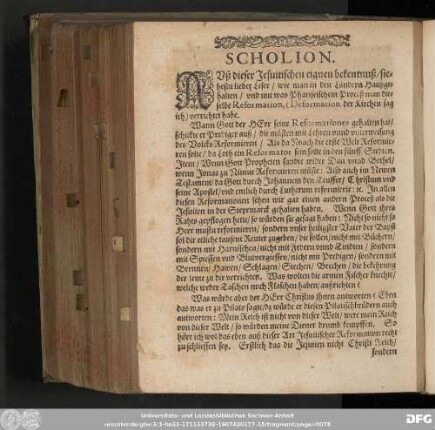 SCHOLION.
AUß dieser Jesuitischen eignen bekentnuß / sie-
hestu lieber Leser / wie man in den Ländern Haußge-
halten / und mit was Phariseischem Proceß man die-
selbe Reformation, (Deformation der Kirchen sag
ich) verrichtet habe.
Wann Gott der HErr seine Reformationes gehalten hat /
schickte er Prediger auß / die müsten mit Lehren unnd unterweisung
des Volcks Reformieren / Als da Noach die erste Welt Reformie-
ren solte / da Loth ein Reformator sein solte in den fünff Stedten.
Item / Wenn Gott Propheten sandte wider Dan unnd Bethel /
wenn Jonas zu Ninive Reformieren müste: Also auch im Newen
Testament / da Gott durch Johannem den Teuffer / Christum und
seine Apostel / und entlich durch Lutherum reformierte: ec. In allen
diesen Reformationen sehen wir gar einen andern Proceß als die
Jesuiten in der Steyrmarck gehalten haben. Wenn Gott ihres
Rahts gepflogen hette / so würden sie gesagt haben: Nicht so nicht so
Herr mustu reformieren / sondern unser heiligster Vater der Bapst
sol dir etliche tausend Reuter zugeben / die sollen / nicht mit Büchern /
sondern mit Harnischen / nicht mit Federn unnd Tindten / sondern
mit Spiessen und Blutvergiessen / nicht mit Predigen / sondern mit
Brennen / Hawen / Schlagen / Stechen / Brechen / die bekehrung
der leute zu dir verrichten. Was wolten die armen Fischer knechte /
welche weder Taschen noch Flaschen haben / außrichten?
Was würde aber der HErr Christus ihnen antworten? Eben
das was er zu Pilato sagte / dz würde er diesen Pilatischbrüdern auch
antworten: Mein Reich ist nicht von dieser Welt / were mein Reich
von dieser Welt / so würden meine Diener drumb kempffen. So
hör ich wol das eben auß dieser Art Jesuitischer Reformation recht
zu schliessen sey. Erstlich das die Jesuiten nicht Christi Reich /
sondern
Universitäts- und Landesbibliothek Sachsen-Anhalt